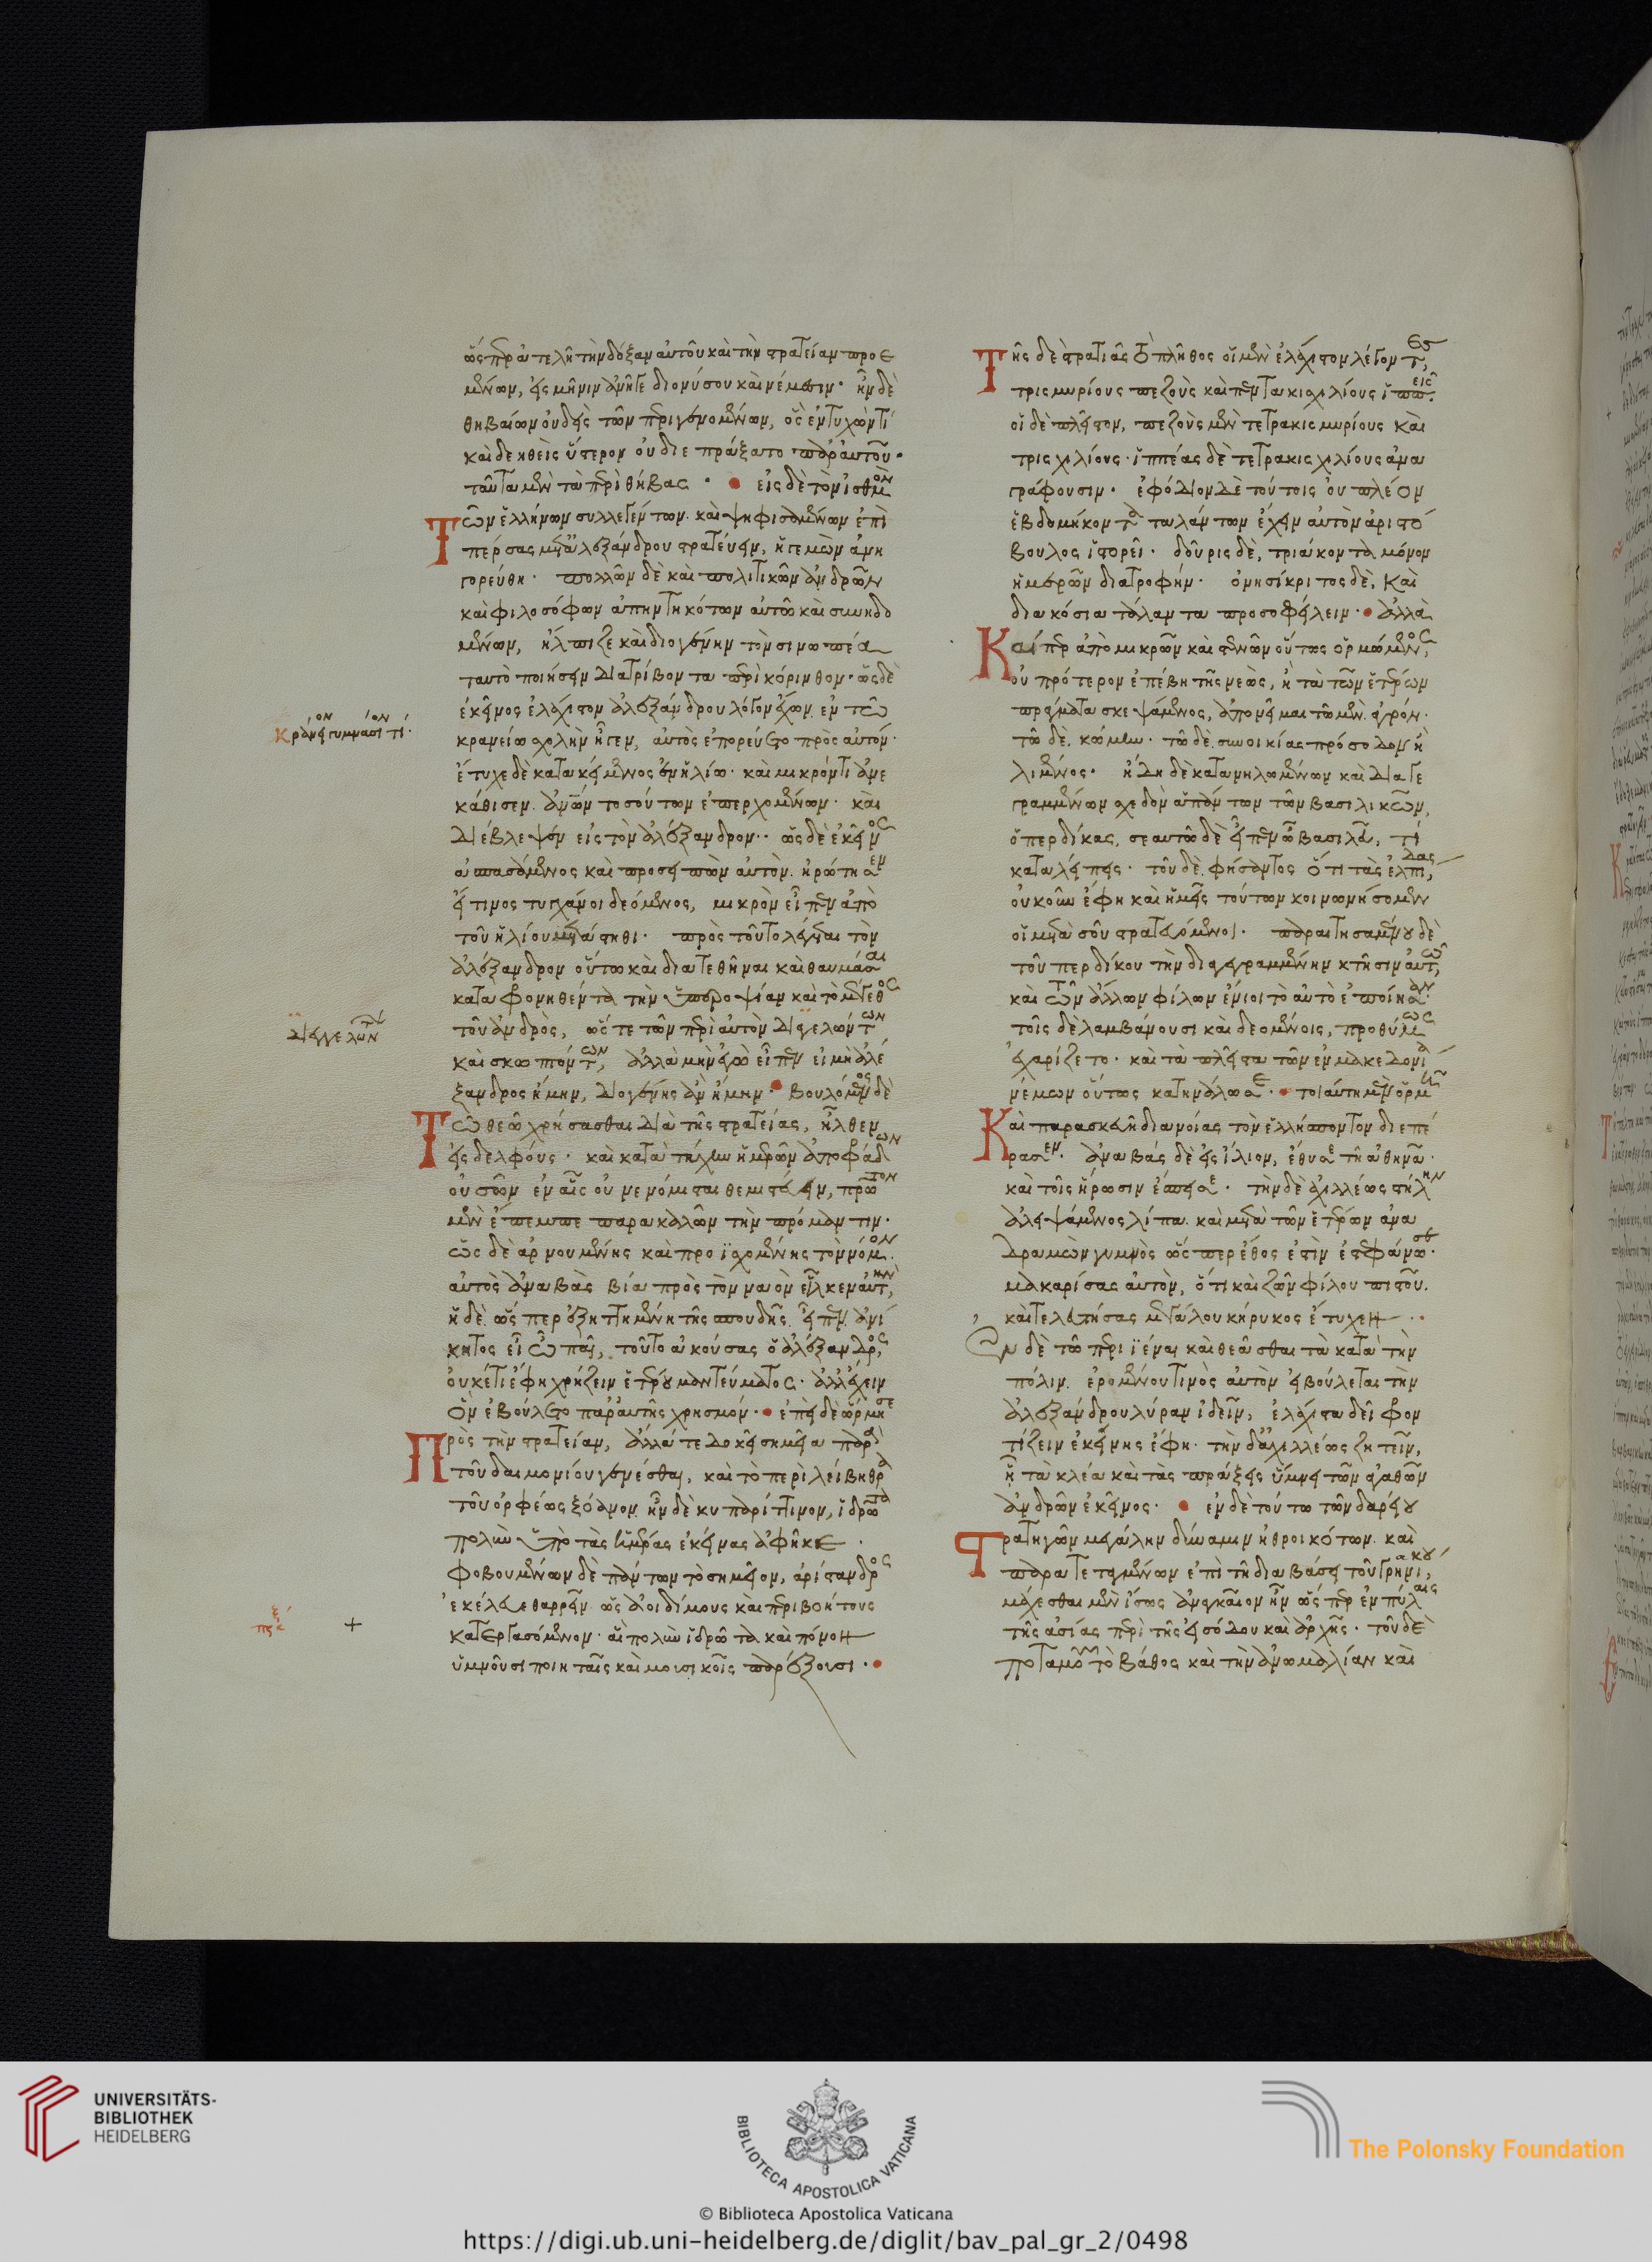 ὥσπερ ἀτελῆ τὴν δόξαν αὐτοῦ καὶ τὴν στρατείαν προε
μένων, εἰς μῆνιν ἀνῆγε διονύσου καὶ νέμεσιν· ἦν δὲ
θηβαίων οὐδεὶς τῶν περιγενομένων, ὃς ἐντυχών τι
καὶ δεηθεὶς ὕστερον οὐ διεπράξατο παρ' αὐτοῦ·
ταῦτα μὲν τὰ περὶ θήβας · εἰς δὲ τὸν ἰσθμὸν
Τῶν ἑλλήνων συλλεγέντων· καὶ ψηφισαμένων ἐπὶ
πέρσας μετ' ἀλεξάνδρου στρατεύειν, ἡγεμὼν ἀνη
γορεύθη· πολλῶν δὲ καὶ πολιτικῶν ἀνδρῶν
καὶ φιλοσόφων ἀπηντηκότων αὐτῶ καὶ συνηδο
μένων, ἤλπιζε καὶ διογένην τὸν σινωπέα
ταυτὸ ποιήσειν διατρίβοντα περὶ κόρινθον· ὡς δὲ
ἐκεῖνος ἐλάχιστον ἀλεξάνδρου λόγον ἔχων, ἐν τῶ
κρανείω σχολὴν ἦγεν, αὐτὸς ἐπορεύετο πρὸς αὐτόν·
ἔτυχε δὲ κατακείμενος ἐν ἡλίω· καὶ μικρόν τι ἀνε
κάθισεν ἀνθρώπων τοσούτων ἐπερχομένων· καὶ
διέβλεψεν εἰς τὸν ἀλέξανδρον· ὡς δὲ ἐκεῖνος
ἀσπασάμενος καὶ προσειπὼν αὐτὸν ἠρώτησεν
εἴ τινος τυγχάνοι δεόμενος, μικρὸν εἶπεν ἀπὸ
τοῦ ἡλίου μετάστηθι· πρὸς τοῦτο λέγεται τὸν
ἀλέξανδρον οὕτω καὶ διατεθῆναι καὶ θαυμάσαι
καταφρονηθέντα τὴν ὑπεροψίαν καὶ τὸ μέγεθος
τοῦ ἀνδρὸς, ὥστε τῶν περὶ αὐτὸν διαγελώντων
καὶ σκωπτόντων, ἀλλὰ μὴν ἐγὼ εἶπεν εἰ μὴ ἀλέ
ξανδρος ἤμην, διογένης ἂν ἤμην· βουλόμενος δὲ
Τῶ θεῶ χρήσασθαι διὰ τῆς στρατείας, ἦλθεν
εἰς δελφούς· καὶ κατὰ τύχην ἡμερῶν ἀποφράδων
οὐσῶν ἐν αἷς οὐ νενόμισται θεμιστεύειν, πρῶτον
μὲν ἔπεμπε παρακαλῶν τὴν πρόμαντιν·
ὡς δὲ ἀρνουμένης καὶ προϊσχομένης τὸν νόμον·
αὐτὸς ἀναβὰς βία πρὸς τὸν ναὸν εἷλκεν αὐτήν,
ἡ δὲ ὥσπερ ἐξηττημένη τῆς σπουδῆς εἶπεν ἀνί
κητος εἶ ὦ παῖ, τοῦτο ἀκούσας ὁ ἀλέξανδρος,
οὐκέτι ἔφη χρήζειν ἑτέρου μαντεύματος· ἀλλ' ἔχειν
ὃν ἐβούλετο παρ' αὐτῆς χρησμόν· ἐπεὶ δὲ ὥρμησε
Πρὸς τὴν στρατείαν, ἄλλα τε δοκεῖ σημεῖα παρὰ
τοῦ δαιμονίου γενέσθαι, καὶ τὸ περὶ λείβηθρα
τοῦ ὀρφέως ξόανον ἦν δὲ κυπαρίττινον, ἱδρῶτα
πολὺν ὑπὸ τὰς ἡμέρας ἐκείνας ἀφῆκε ·
φοβουμένων δὲ πάντων τὸ σημεῖον, ἀρίστανδρος
ἐκέλευε θαρρεῖν ὡς ἀοιδίμους καὶ περιβοήτους
κατεργασόμενον· αἳ πολὺν ἱδρῶτα καὶ πόνον
ὑμνοῦσι ποιηταῖς καὶ μουσικοῖς παρέξουσι·
κράνειον γυμνάσιόν τι·
διαγελών
Τῆς δὲ στρατιᾶς τὸ πλῆθος οἱ μὲν ἐλάχιστον λέγοντες,
τρισμυρίους πεζοὺς καὶ πεντακισχιλίους ἱππεῖς·
οἱ δὲ πλεῖστον, πεζοὺς μὲν τετρακισμυρίους καὶ
τρισχιλίους· ἱππέας δὲ τετρακισχιλίους ἅμα
γράφουσιν· ἐφόδιον δὲ τούτοις οὐ πλέον
ἑβδομήκοντα ταλάντων ἔχειν αὐτὸν ἀριστό
βουλος ἱστορεῖ· δοῦρις δὲ, τριάκοντα μόνον
ἡμερῶν διατροφήν· ὀνησίκριτος δὲ, καὶ
διακόσια τάλαντα προσοφείλειν· ἀλλὰ
Καίπερ ἀπὸ μικρῶν καὶ στενῶν οὕτως ὁρμώμενος,
οὐ πρότερον ἐπέβη τῆς νεὼς, ἢ τὰ τῶν ἑτέρων
πράγματα σκεψάμενος, ἀπονεῖμαι τῶ μὲν ἀγρόν·
τῶ δὲ κώμην· τῶ δὲ συνοικίας πρόσοδον ἢ
λιμένος· ἤδη δὲ κατανηλωμένων καὶ διαγε
γραμμένων σχεδὸν ἁπάντων τῶν βασιλικῶν,
ὁ περδίκας, σεαυτῶ δὲ εἶπεν ὦ βασιλεῦ, τί
καταλείπεις· τοῦ δὲ φήσαντος ὅτι τὰς ἐλπίδας,
οὐκοῦν ἔφη καὶ ἡμεῖς τούτων κοινωνήσομεν
οἱ μετὰ σοῦ στρατευόμενοι· παραιτησαμένου δὲ
τοῦ περδίκου τὴν διαγεγραμμένην κτῆσιν αὐτῶ,
καὶ τῶν ἄλλων φίλων ἔνιοι τὸ αὐτὸ ἐποίησαν·
τοῖς δὲ λαμβάνουσι καὶ δεομένοις, προθύμως
ἐχαρίζετο· καὶ τὰ πλεῖστα τῶν ἐν μακεδονία
νέμων οὕτως κατηνάλωσε· τοιαύτη μὲν ὁρμῆ
Καὶ παρασκευῆ διανοίας τὸν ἑλλήσποντον διεπέ
ρασεν· ἀναβὰς δὲ εἰς ἴλιον, ἔθυσε τῆ ἀθηνᾶ·
καὶ τοῖς ἥρωσιν ἔσπεισε· τὴν δὲ ἀχιλλέως στήλην
ἀλειψάμενος λίπα· καὶ μετὰ τῶν ἑτέρων ἅμα
δραμὼν γυμνὸς ὥσπερ ἔθος ἐστὶν ἐστεφάνωσεν·
μακαρίσας αὐτὸν, ὅτι καὶ ζῶν φίλου πιστοῦ·
καὶ τελευτήσας μεγάλου κήρυκος ἔτυχεν
Ἐν δὲ τῶ περιϊέναι καὶ θεᾶσθαι τὰ κατὰ τὴν
πόλιν ἐρομένου τινὸς αὐτὸν εἰ βούλεται τὴν
ἀλεξάνδρου λύραν ἰδεῖν, ἐλάχιστα δεῖ φρον
τίζειν ἐκείνης ἔφη· τὴν δ' ἀχιλλέως ζητεῖν,
ἧ τὰ κλέα καὶ τὰς πράξεις ὕμνει τῶν ἀγαθῶν
ἀνδρῶν ἐκεῖνος· ἐν δὲ τούτω τῶν δαρείου
Στρατηγῶν μεγάλην δύναμιν ἠθροικότων καὶ
παρατεταγμένων ἐπὶ τῆ διαβάσει τοῦ γρηνίκου,
μάχεσθαι μὲν ἴσως ἀναγκαῖον ἦν ὥσπερ ἐν πύλαις
τῆς ἀσίας περὶ τῆς εἰσόδου καὶ ἀρχῆς· τοῦ δὲ
ποταμοῦ τὸ βάθος καὶ τὴν ἀνωμαλίαν καὶ
UNIVERSITÄTS-
BIBLIOTHEK
HEIDELBERG
BIBLIOTECA APOSTOLICA VATICANA
The Polonsky Foundation
© Biblioteca Apostolica Vaticana
https://digi.ub.uni-heidelberg.de/diglit/bav_pal_gr_2/0498